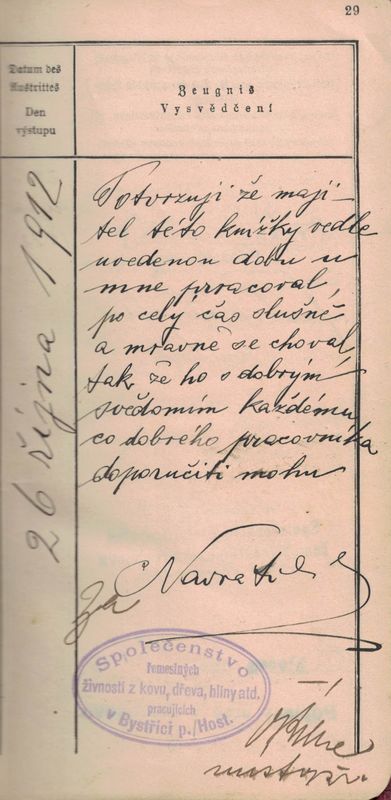 29
Datum des Austrittes
Den výstupu
Zeugnis
Vysvědčení
26 října 1912
Potvrzuji že maji-
tel této knížky vedle
uvedenou dobu u
mne pracoval,
po celý čas slušně
a mravně se choval,
tak že ho s dobrým
svědomím každému
co dobrého pracovníka
doporučiti mohu
Navrátil
Za
Společenstvo
řemeslných
živností z kovu, dřeva, hlíny atd.
pracujících
v Bystřici p./Host.